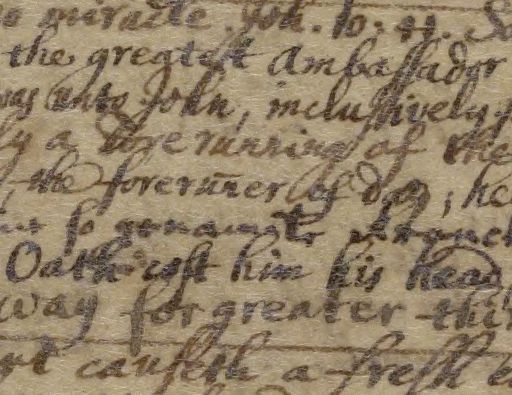 miracle, Joh. 10. 41. So
the greatest Ambassador
was unto John, inclusively
a fore running of the
the foreruñer of day; he
so
Oath cost him his head
way for greater thin
causeth a fresh